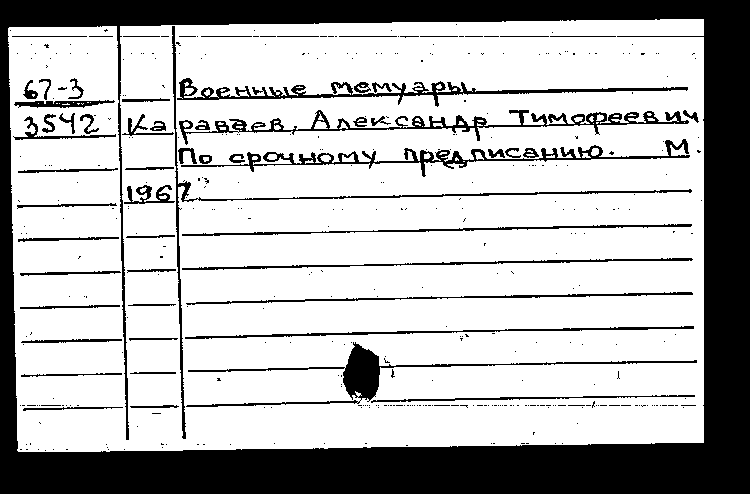 67-3 Военные мемуары.
3542 Караваев, Александр Тимофеевич
По срочному предписанию. М.
1967